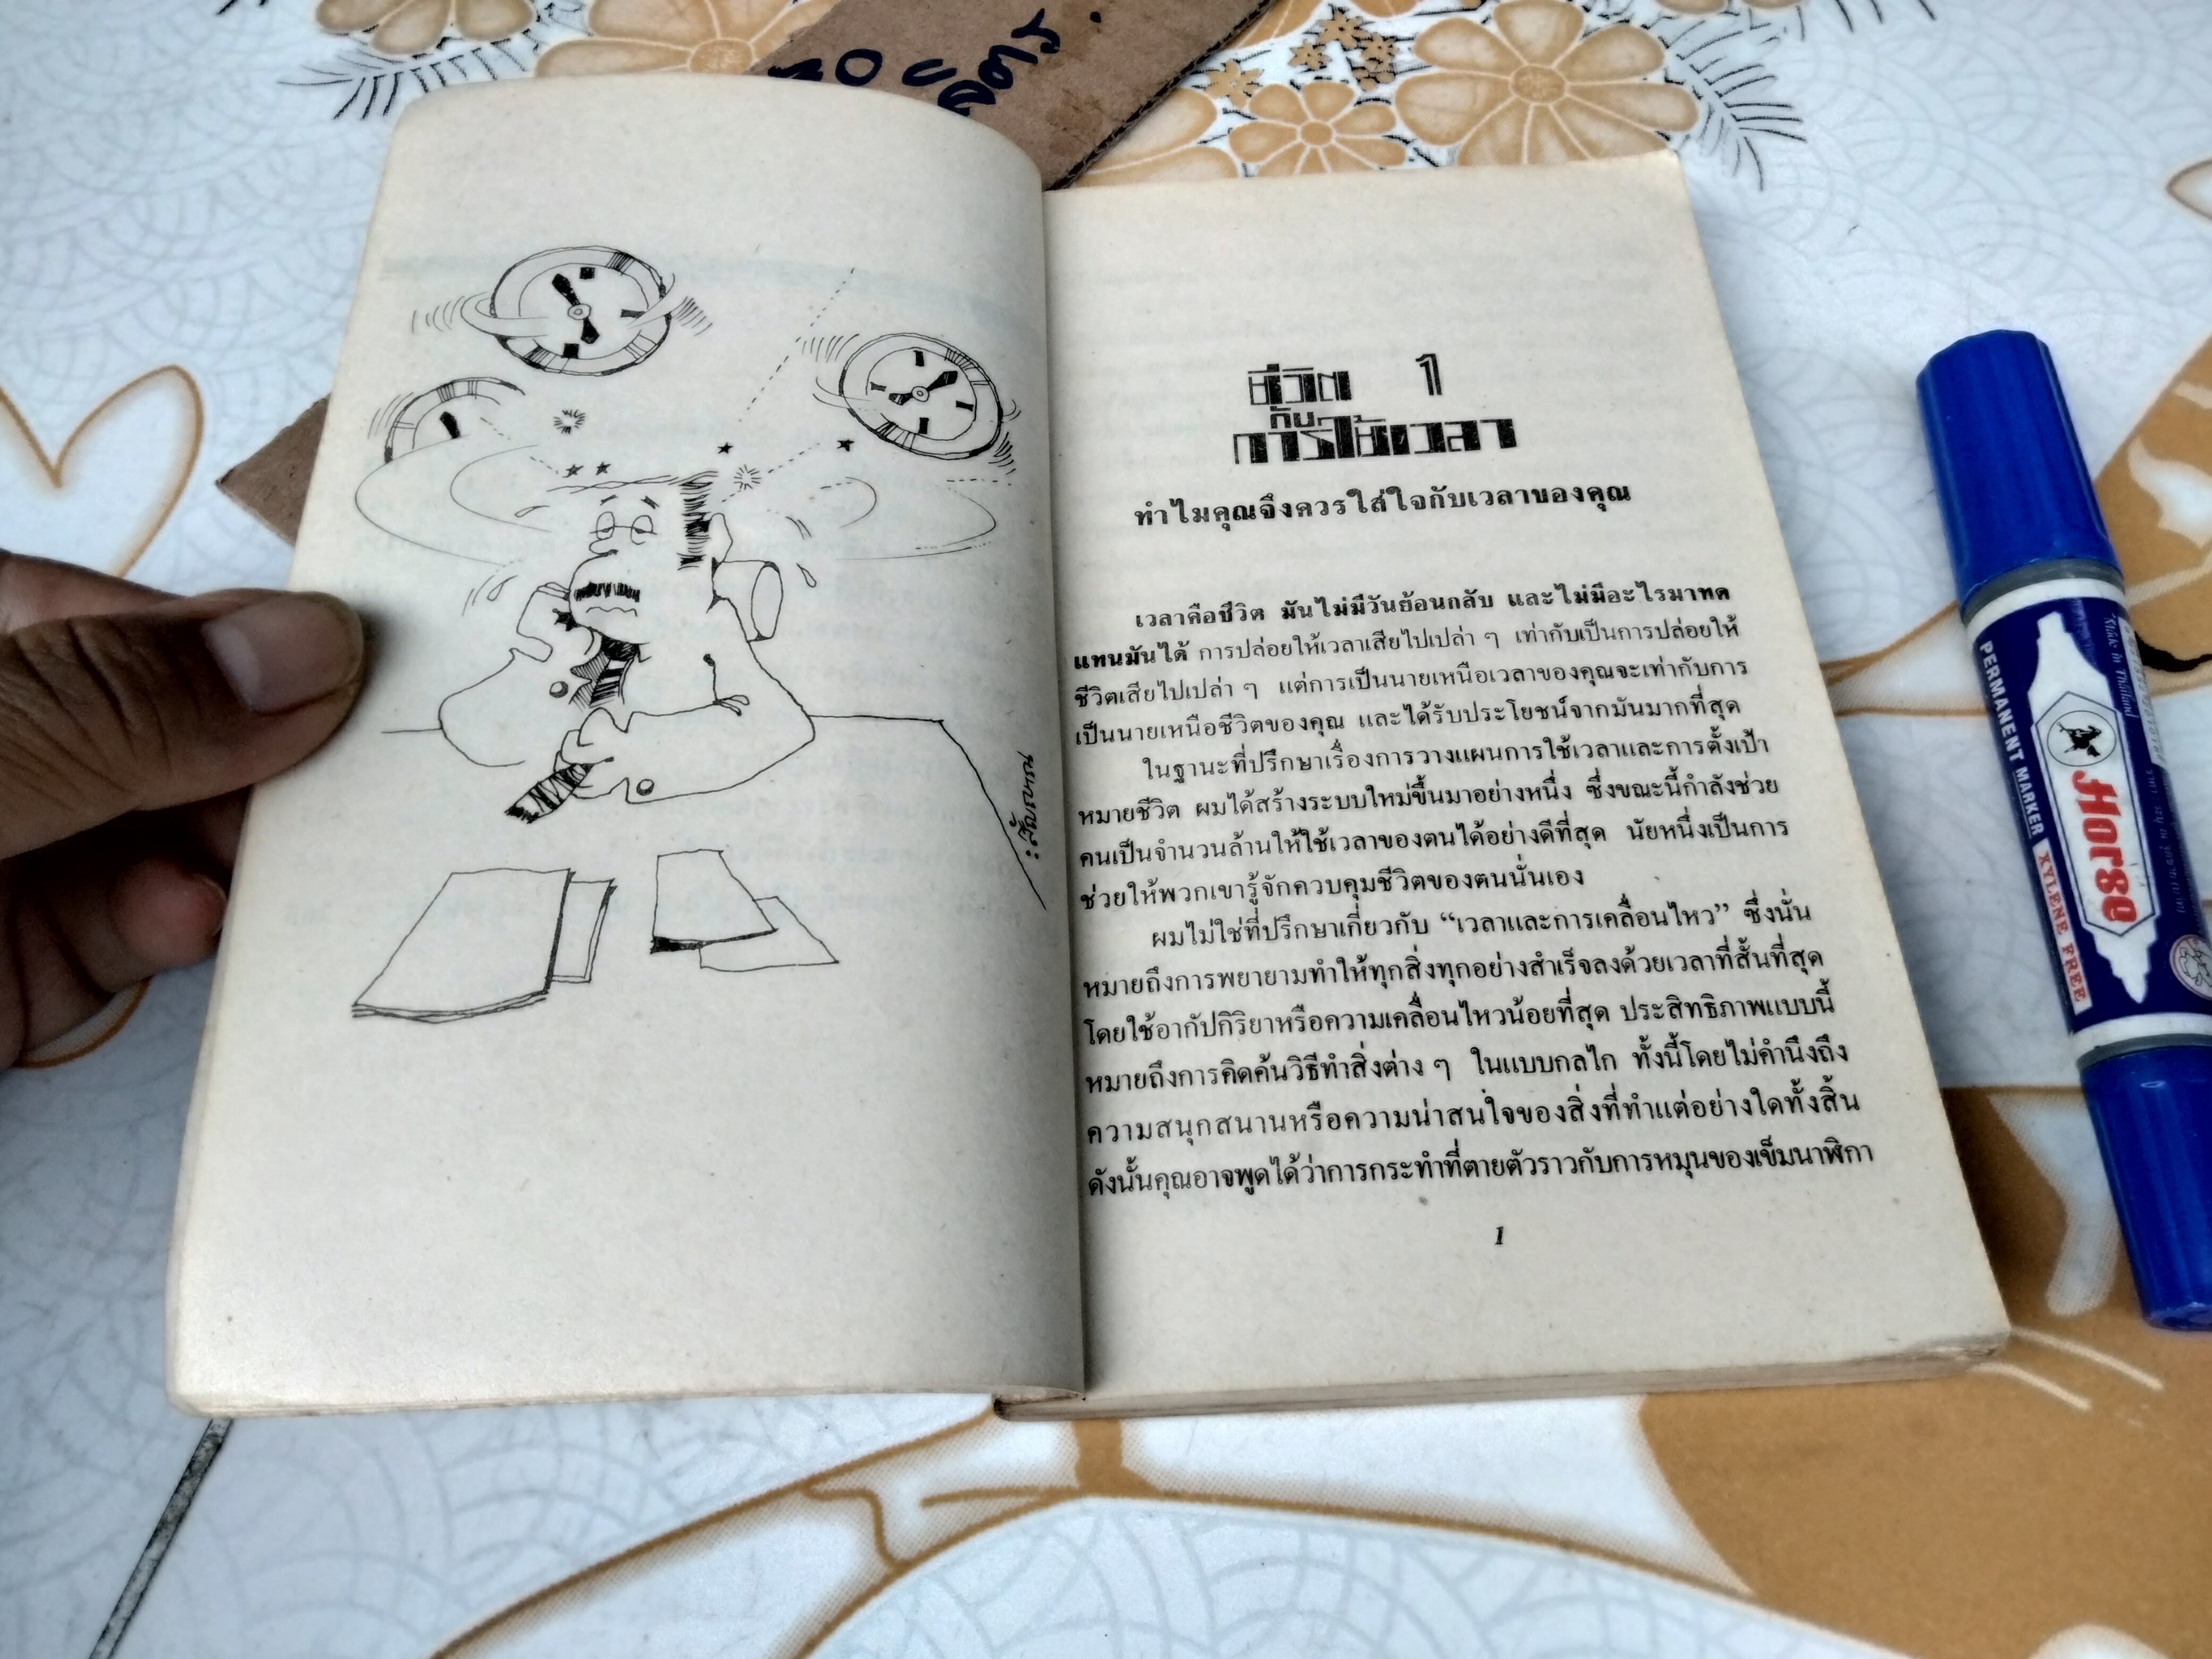 ชีวิต 1
กับ
การใช้เวลา
ทำไมคุณจึงควรใส่ใจกับเวลาของคุณ
เวลาคือชีวิต มันไม่มีวันย้อนกลับ และไม่มีอะไรมาทด
แทนมันได้ การปล่อยให้เวลาเสียไปเปล่า ๆ เท่ากับเป็นการปล่อยให้
ชีวิตเสียไปเปล่า ๆ แต่การเป็นนายเหนือเวลาของคุณจะเท่ากับการ
เป็นนายเหนือชีวิตของคุณ และได้รับประโยชน์จากมันมากที่สุด
ในฐานะที่ปรึกษาเรื่องการวางแผนการใช้เวลาและการตั้งเป้า
หมายชีวิต ผมได้สร้างระบบใหม่ขึ้นมาอย่างหนึ่ง ซึ่งขณะนี้กำลังช่วย
คนเป็นจำนวนล้านให้ใช้เวลาของตนได้อย่างดีที่สุด นัยหนึ่งเป็นการ
ช่วยให้พวกเขารู้จักควบคุมชีวิตของตนนั่นเอง
ผมไม่ใช่ที่ปรึกษาเกี่ยวกับ “เวลาและการเคลื่อนไหว” ซึ่งนั่น
หมายถึงการพยายามทำให้ทุกสิ่งทุกอย่างสำเร็จลงด้วยเวลาที่สั้นที่สุด
โดยใช้อากัปกิริยาหรือความเคลื่อนไหวน้อยที่สุด ประสิทธิภาพแบบนี้
หมายถึงการคิดค้นวิธีทำสิ่งต่าง ๆ ในแบบกลไก ทั้งนี้โดยไม่คำนึงถึง
ความสนุกสนานหรือความน่าสนใจของสิ่งที่ทำแต่อย่างใดทั้งสิ้น
ดังนั้นคุณอาจพูดได้ว่าการกระทำที่ตายตัวราวกับการหมุนของเข็มนาฬิกา
1
Made in Thailand
Horse
PERMANENT MARKER XYLENE FREE